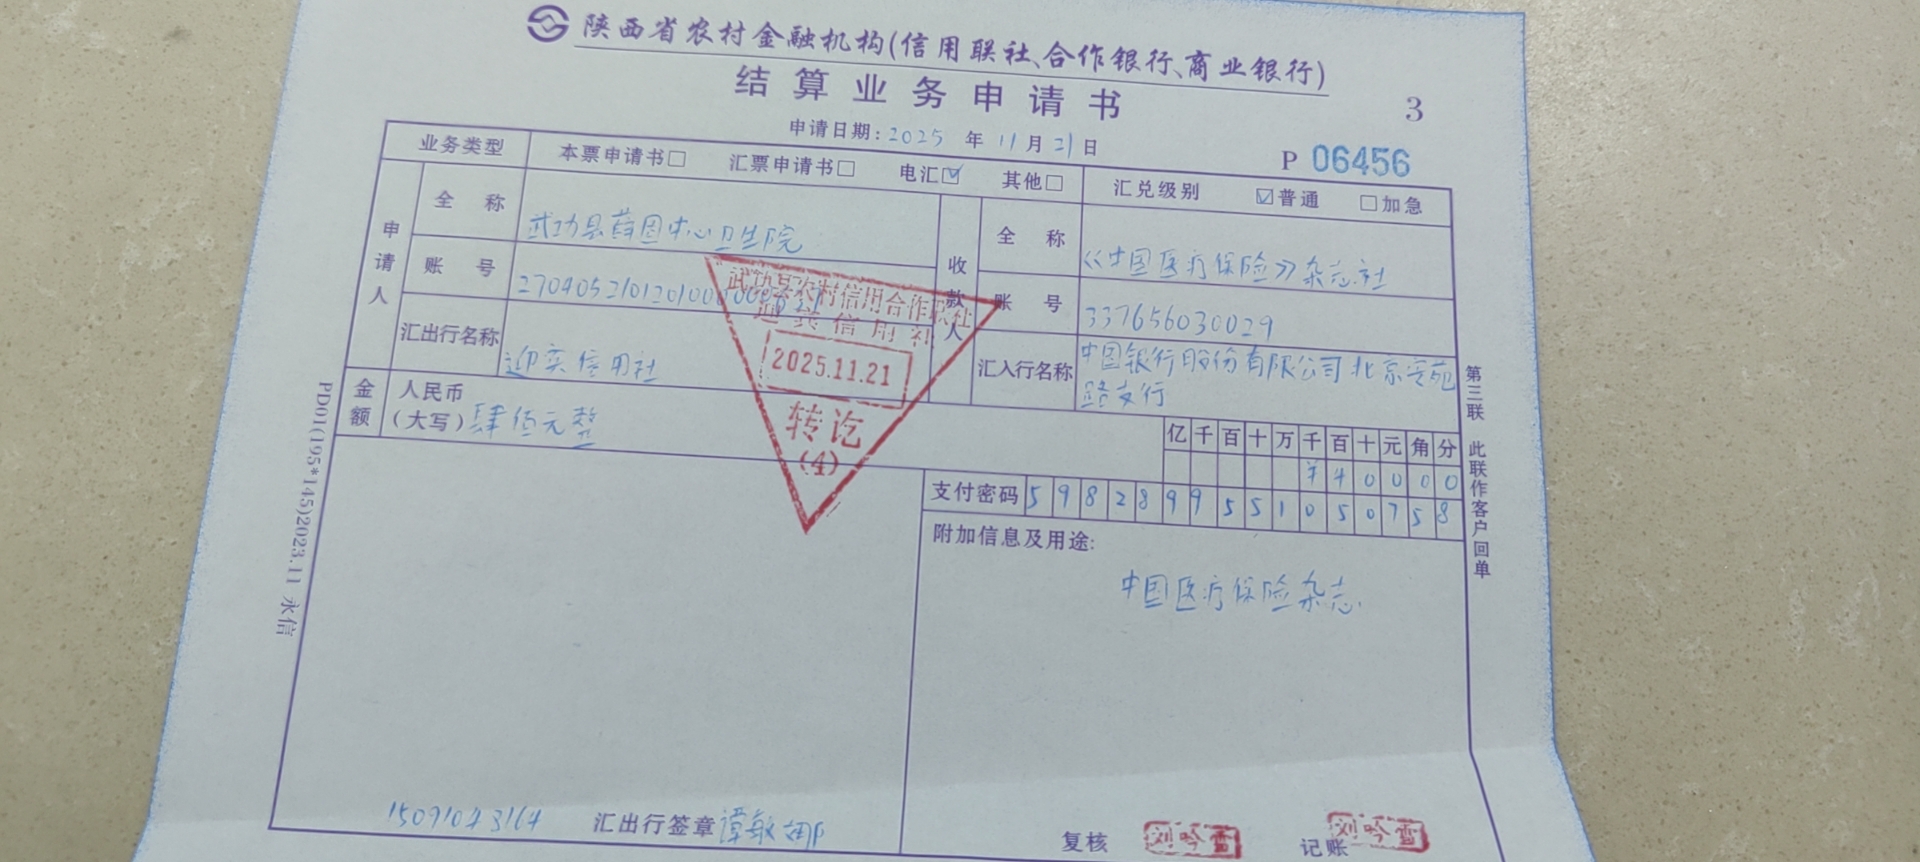 陕西省农村金融机构(信用联社、合作银行、商业银行)
结算业务申请书
3
申请日期:2025年11月21日
P 06456
业务类型 本票申请书□ 汇票申请书□ 电汇☑ 其他□ 汇兑级别 ☑普通 □加急
申请人
全称 武功县薛固中心卫生院
账号
汇出行名称 迎奕信用社
收款人
全称 《中国医疗保险》杂志社
账号 337656030029
汇入行名称 中国银行股份有限公司北京安苑
路支行
金额 人民币
(大写)肆佰元整
亿千百十万千百十元角分
¥40000
支付密码 5982899551050758
附加信息及用途:
中国医疗保险杂志
武功县农村信用合作联社
信用社
2025.11.21
转讫
(4)
15091043164 汇出行签章 谭敏娜
复核 刘吟雪 记账 刘吟雪
第三联 此联作客户回单
PD01(195*145)2023.11 永信